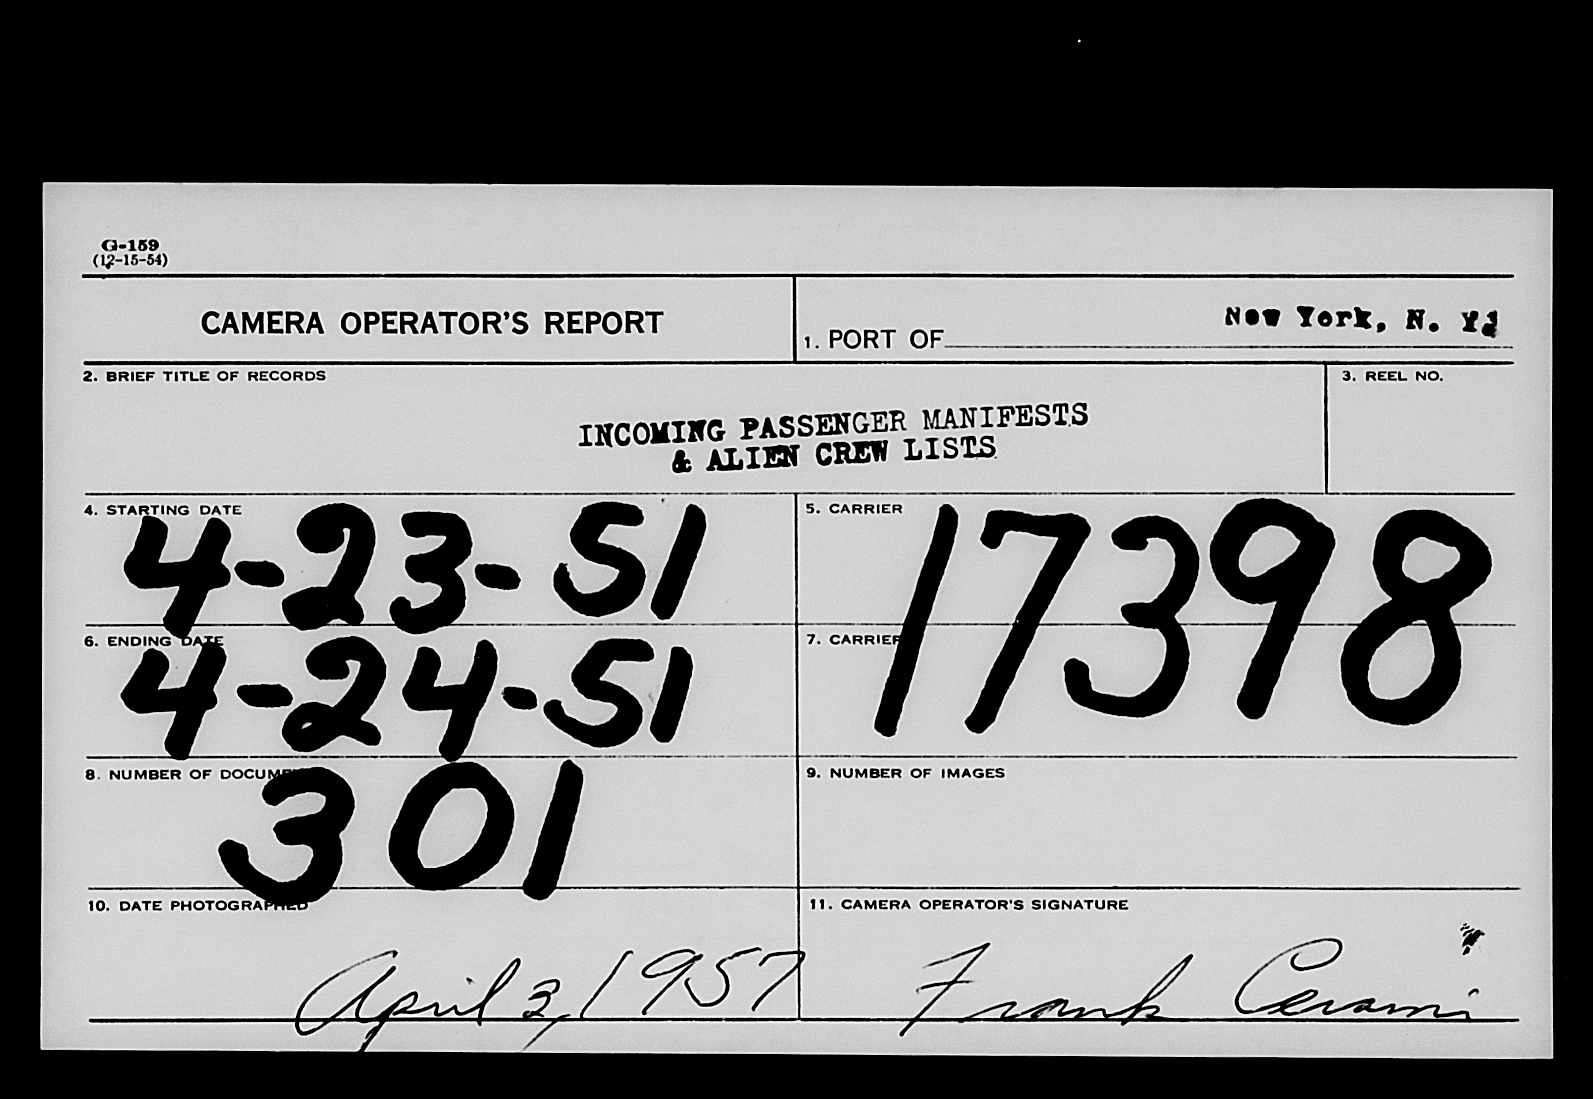 G-159
(12-15-54)
CAMERA OPERATOR'S REPORT
1. PORT OF New York, N. Y.
2. BRIEF TITLE OF RECORDS
3. REEL NO.
INCOMING PASSENGER MANIFESTS
& ALIEN CREW LISTS
4. STARTING DATE
4-23-51
5. CARRIER
17398
6. ENDING DATE
4-24-51
7. CARRIER
8. NUMBER OF DOCUMENTS
301
9. NUMBER OF IMAGES
10. DATE PHOTOGRAPHED
April 3, 1957
11. CAMERA OPERATOR'S SIGNATURE
Frank Cerami